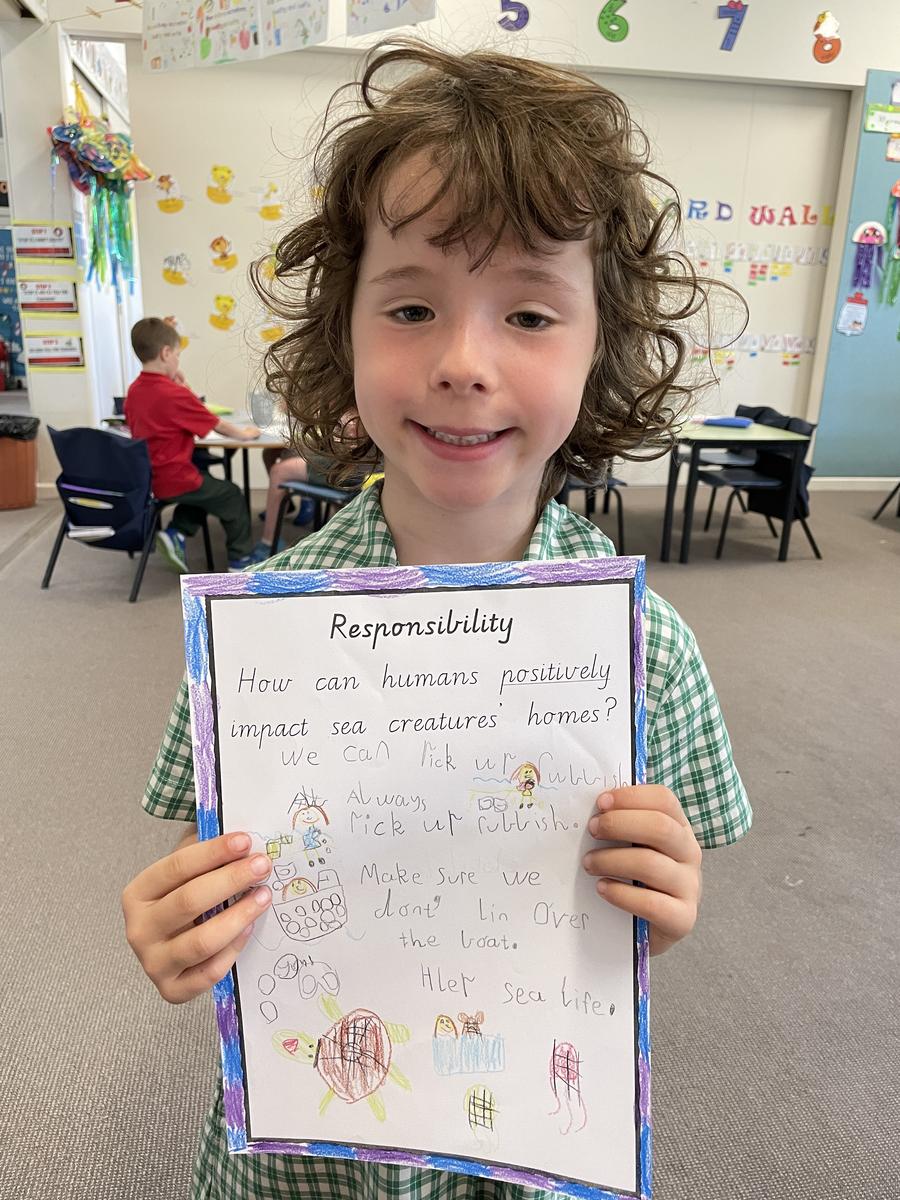 5 6 7 8
RD WALL
Responsibility
How can humans positively
impact sea creatures' homes?
We can Pick up rubbish
Always
Pick up rubbish.
Make sure we
dont' lin Over
the boat.
Hlep sea life.